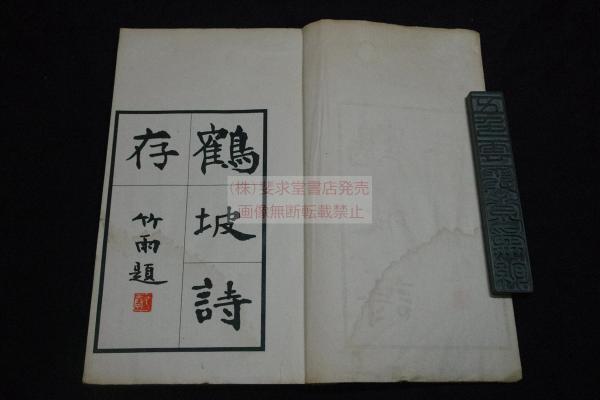 鶴坡詩
存
竹雨題
(株)斐求堂書店発売
画像無断転載禁止